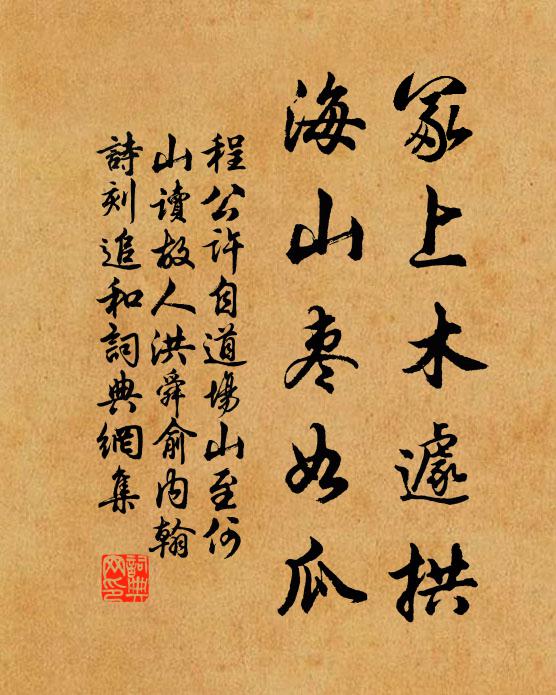 冢上木遽拱
海山枣如瓜
程公許自道場山至何
山讀故人洪舜俞内翰
詩刻追和詞典網集
詞典
网印